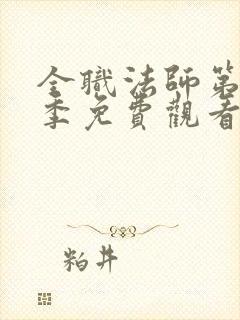 全職法師第
季免費觀看
粕井